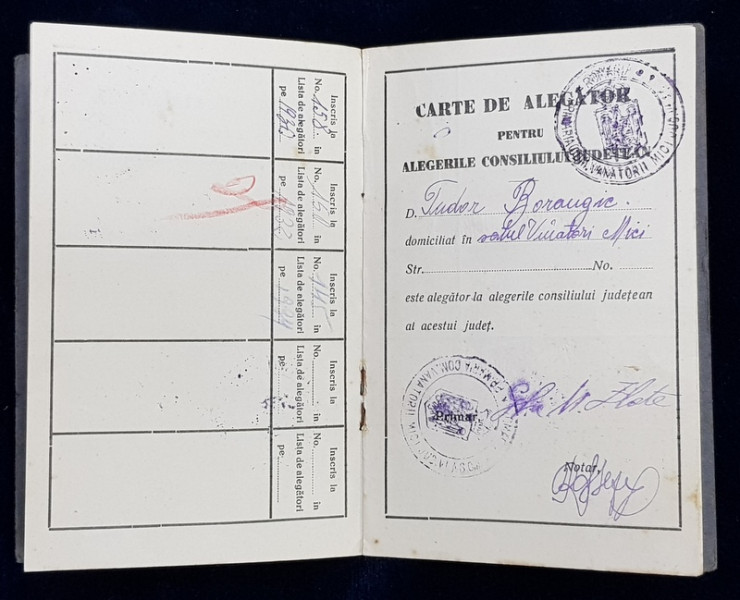 Inscris la
No. 158 in
Lista de alegători
pe 1930
Inscris la
No. 150 in
Lista de alegători
pe 1932
Inscris la
No. 1115 in
Lista de alegători
pe 1934
Inscris la
No. in
Lista de alegători
pe:
Inscris la
No. in
Lista de alegători
pe:
CARTE DE ALEGĂTOR
PENTRU
ALEGERILE CONSILIULUI JUDEȚEAN
D. Tudor Borangic
domiciliat în satul Vînatori Mici
Str. No.
este alegător la alegerile consiliului județean
al acestui județ.
Primar,
Notar,